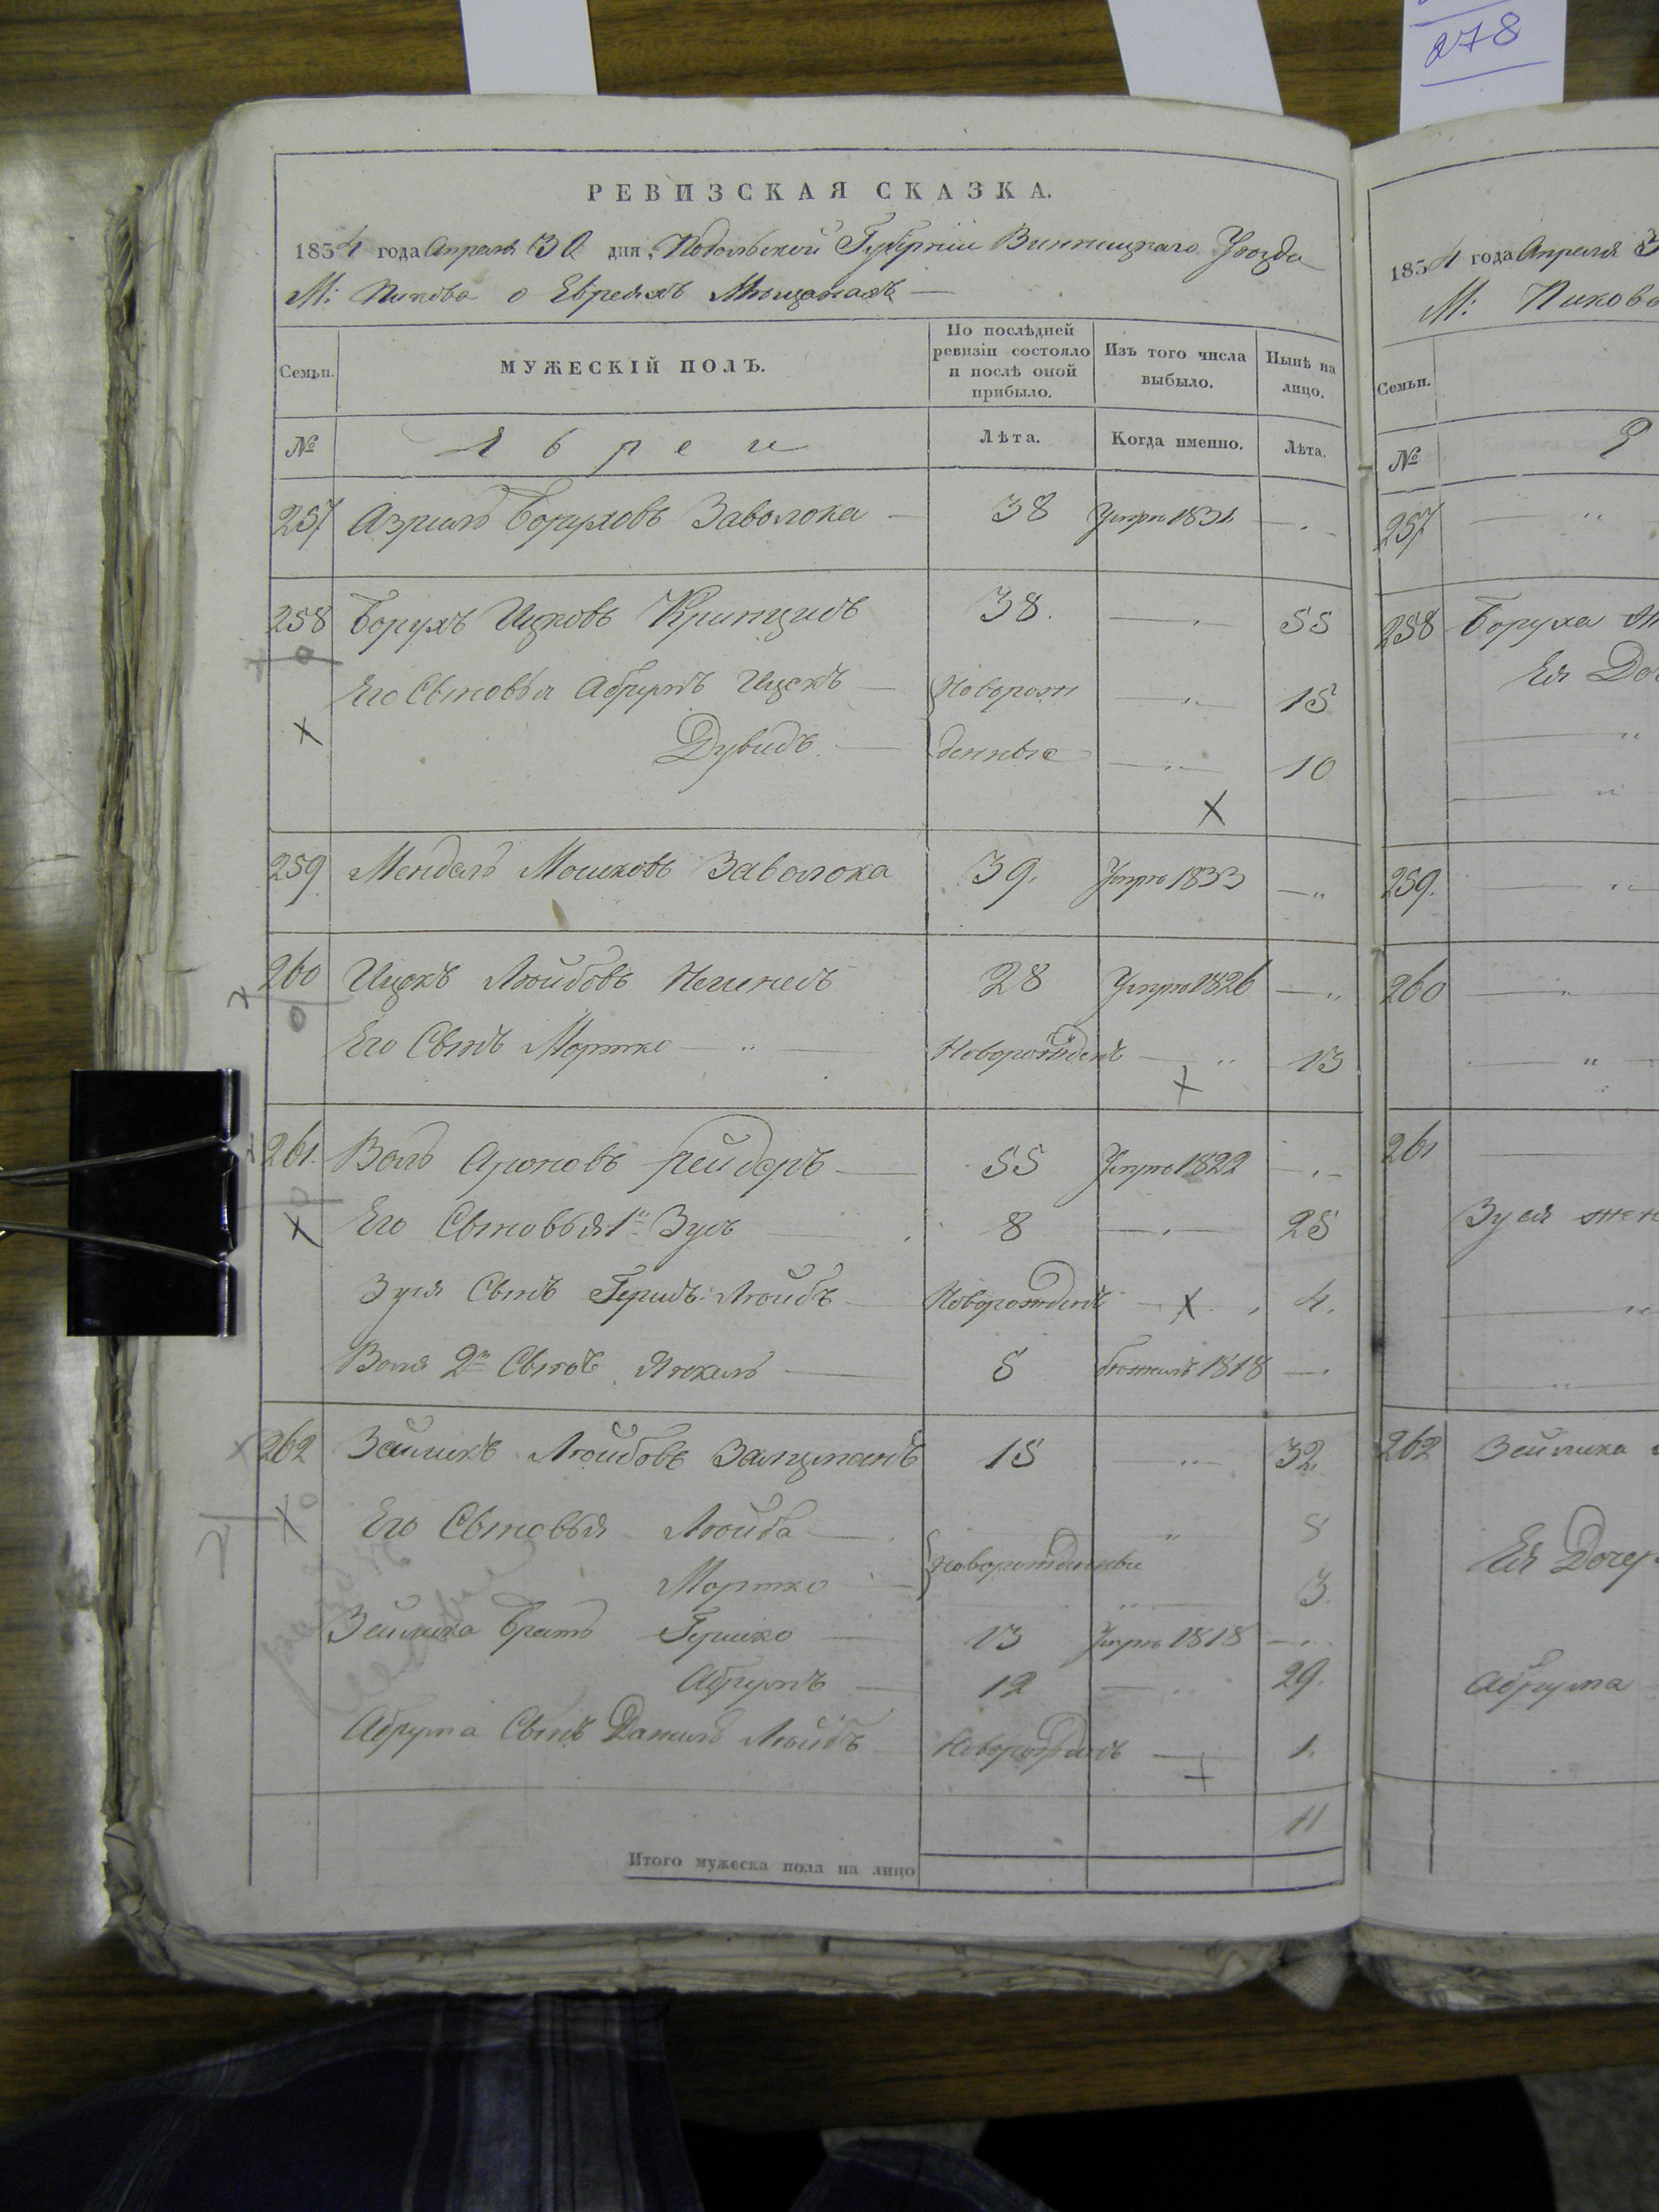 278
РЕВИЗСКАЯ СКАЗКА.
1834 года Апреля 30 дня, Подольской Губернии Винницкаго Уѣзда
М: Пикова о Евреяхъ Мѣщанахъ
Семьи.
МУЖЕСКІЙ ПОЛЪ.
По послѣдней ревизіи состояло и послѣ оной прибыло.
Изъ того числа выбыло.
Нынѣ на лицо.
№
Евреи
Лѣта.
Когда именно.
Лѣта.
257 Азриль Боруховъ Заволока 38 Умре 1831
258 Борухъ Ицковъ 38. 55
Его Сыновья Абрумъ Ицекъ Новорож 15
Дувидъ денные 10
259 Мендель Мошковъ Заволока 39. Умре 1833
260 Ицекъ Лейбовъ 28 Умре 1826
Его Сынъ Мортко Новорожденъ 13
261. Воль Ароновъ 55 Умре 1822
Его Сыновья 1й Зусь 8 25
Зуся Сынъ Гершъ Лейбъ Новорожденъ 4.
Воля 2й Сынъ Янкель 5 1818
262 Зейликъ Лейбовъ Залцманъ 15 32.
Его Сыновья Лейба Новорожденные 8
Мортко 3.
Зейлика братъ Гершко 13 Умре 1818
Абрумъ 12 29.
Абрума Сынъ Даниль Лейбъ Новорожденъ 1.
11
Итого мужеска пола на лицо
1834 года Апреля 3
М: Пиково
Семьи.
№
257
258 Боруха
Ея До
259.
260
261
Зуся жен
262 Зейлика
Ея Дочер
Абрума